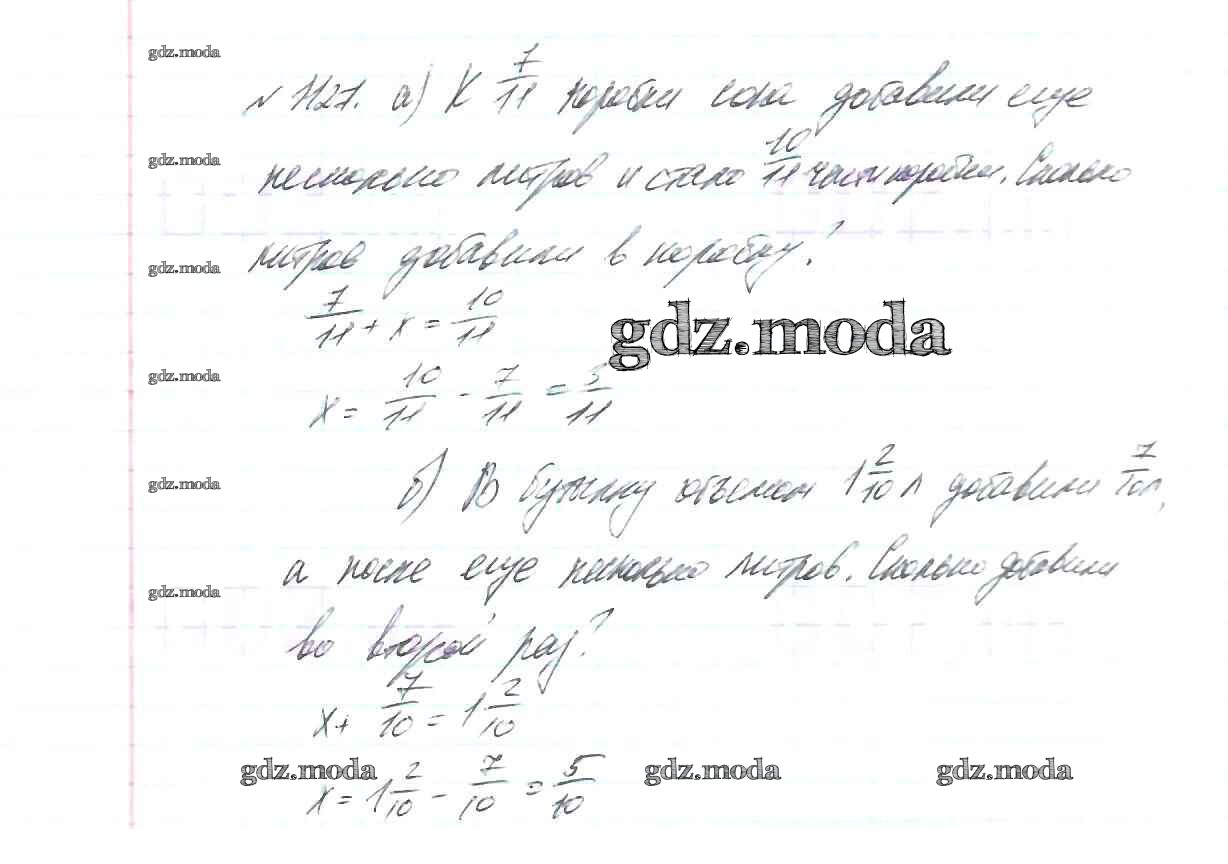 gdz.moda
№ 1127. а) К 7/11 коробки сока добавили еще
gdz.moda
несколько литров и стало 10/11 части коробки. Сколько
литров добавили в коробку?
gdz.moda
7/11 + x = 10/11
gdz.moda
gdz.moda
x = 10/11 - 7/11 = 3/11
gdz.moda
б) В бутылку объемом 1 2/10 л добавили 7/10 л,
а после еще несколько литров. Сколько добавили
gdz.moda
во второй раз?
x + 7/10 = 1 2/10
gdz.moda gdz.moda gdz.moda
x = 1 2/10 - 7/10 = 5/10